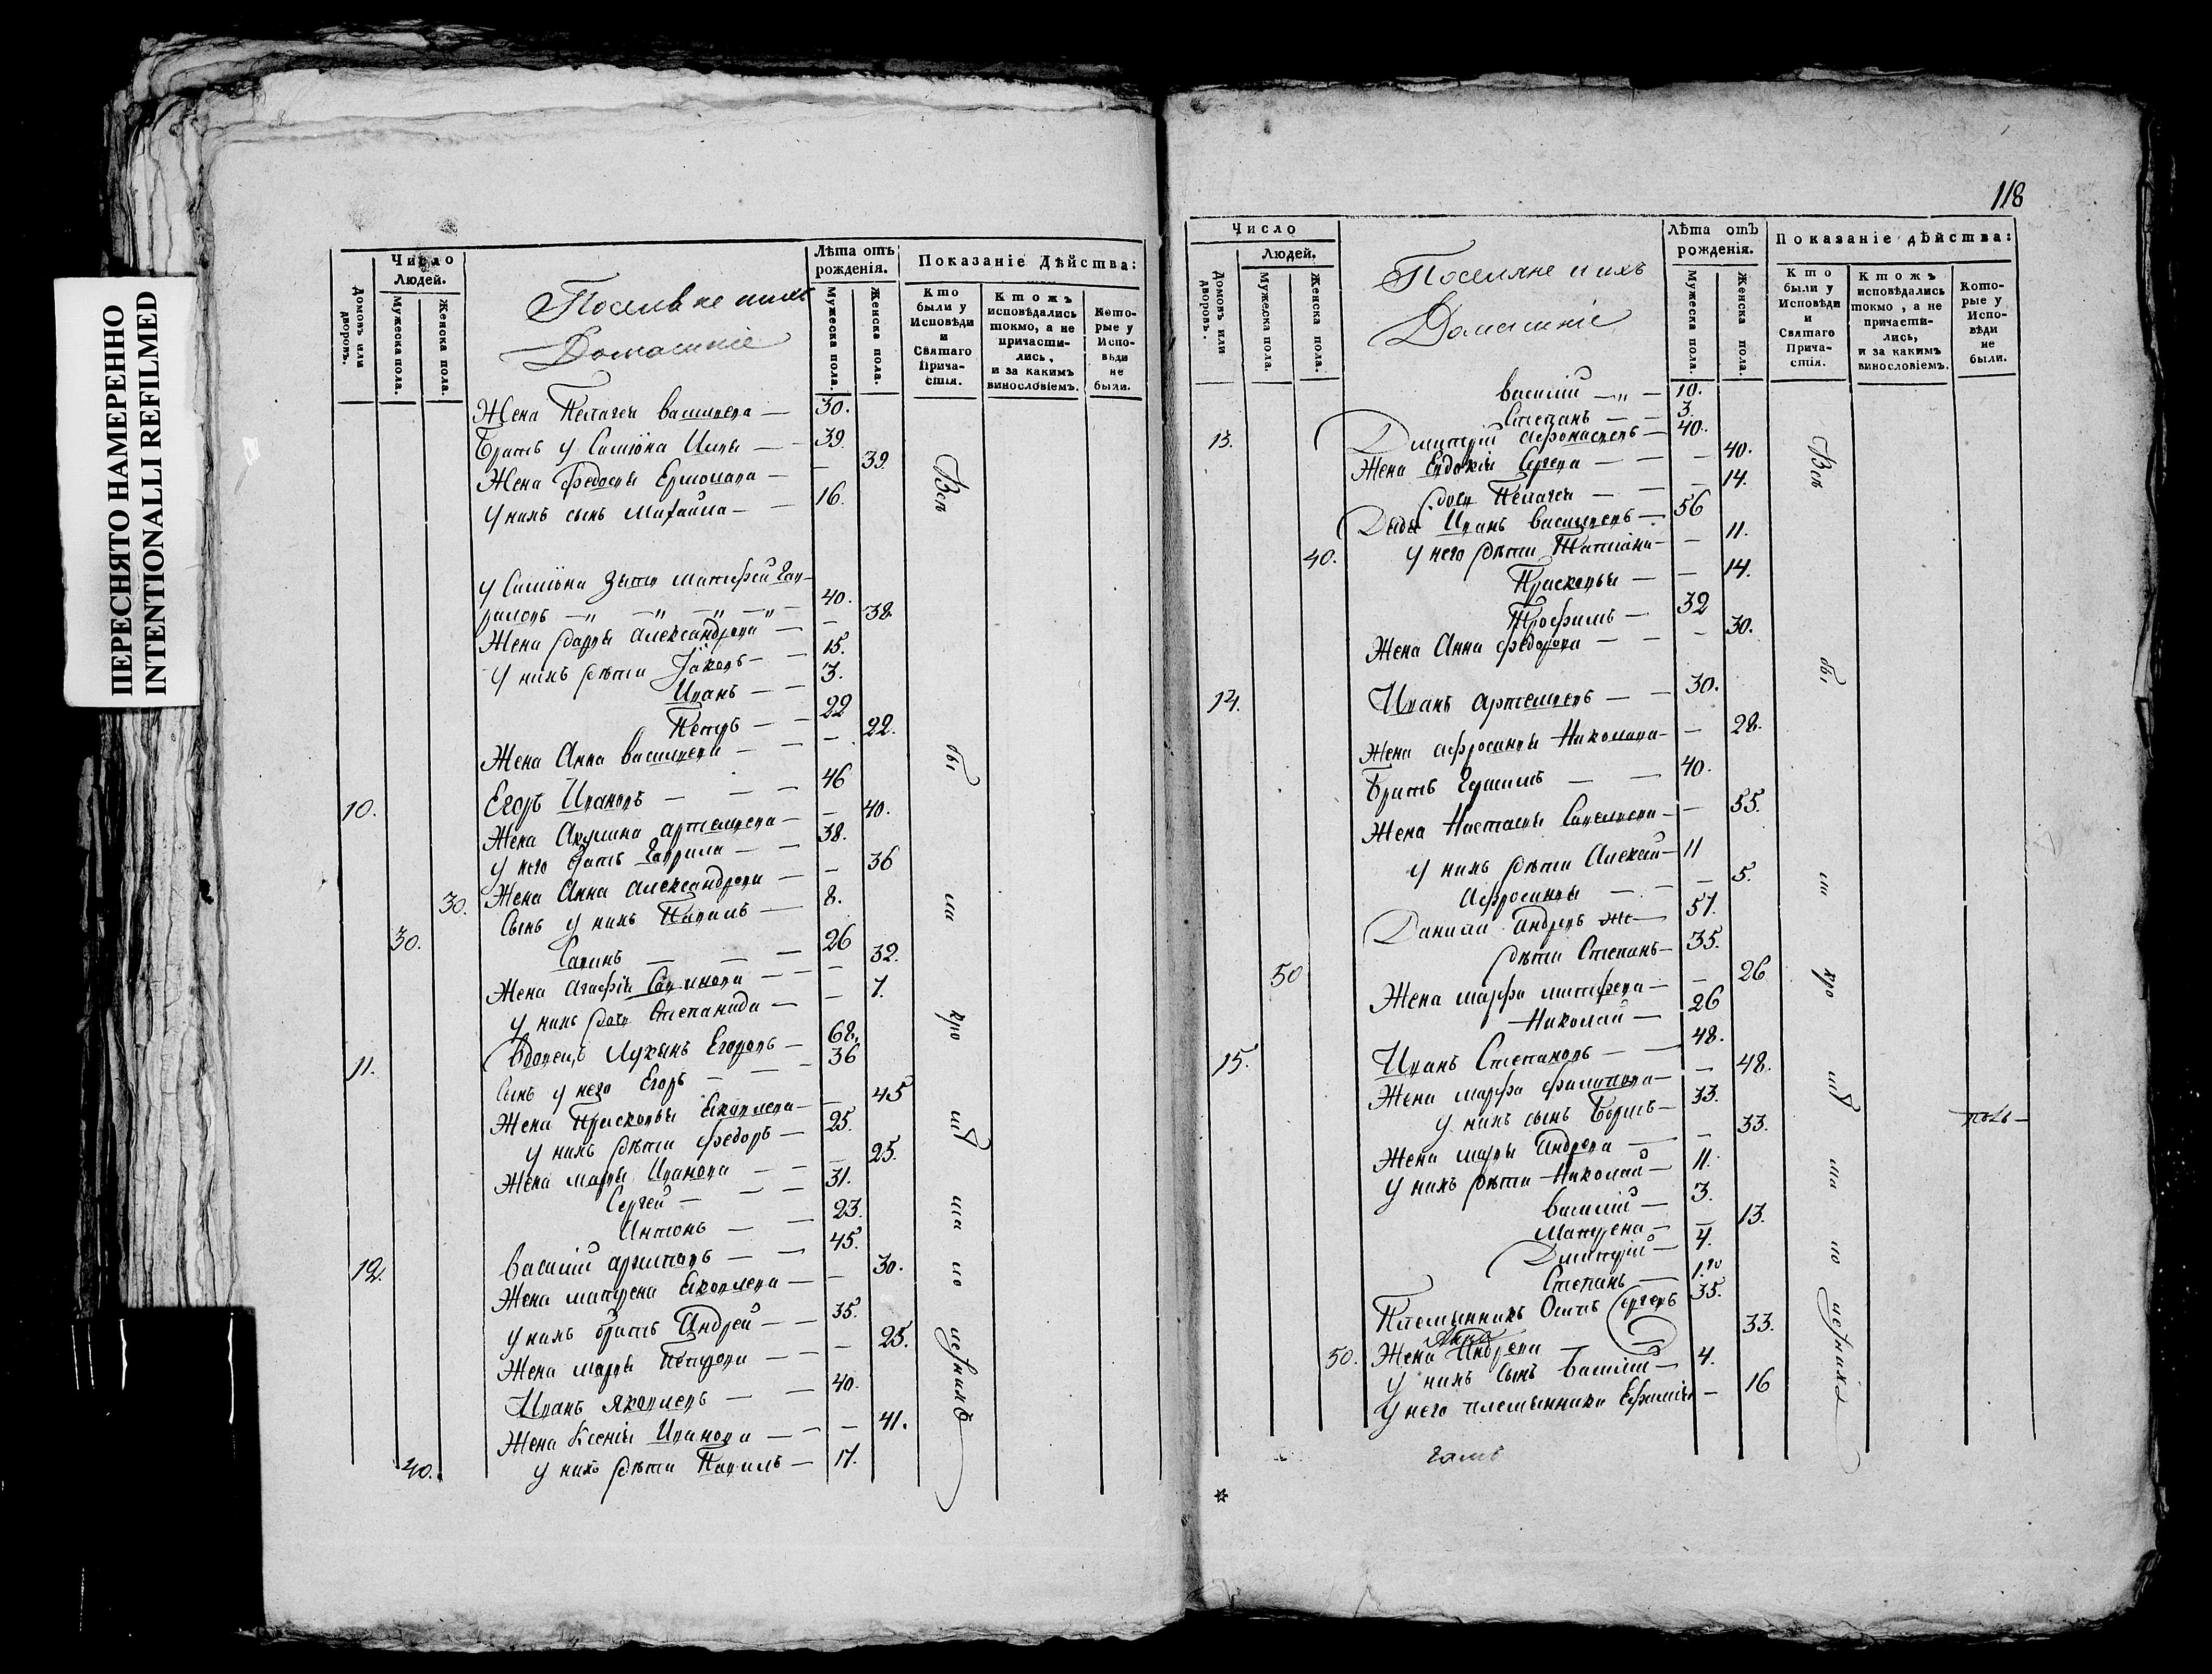 ПЕРЕСНЯТО НАМЕРЕННО
INTENTIONALLI REFILMED
Число
Людей.
Домовъ или дворовъ.
Мужеска пола.
Женска пола.
Поселяне и ихъ
Домашніе
Лѣта отъ рожденія.
Мужеска пола.
Женска пола.
Показаніе Дѣйства:
Кто были у Исповѣди и Святаго Прича-стія.
Ктожъ исповѣдались токмо, а не причасти-лись, и за какимъ винословіемъ.
Кото-рые у Испо-вѣди не были.
Жена Пелагея васильева — 30.
Братъ у Симіона Илья — 39
Жена Федосья Ермолаева — 39
у нихъ сынъ Михайла — 16.
у Симіона зять матвѣй Гав-
риловъ — 40.
Жена дарья александрова — 38
у нихъ дѣти Яковъ — 15.
Иванъ — 3.
Петръ — 22
Жена Анна васильева — 22.
10. Егоръ Ивановъ — 46
Жена Акулина артемьева — 40.
у него братъ Гаврила — 38.
30. Жена Анна александрова — 36
Сынъ у нихъ Павилъ — 8.
30. Савинъ — 26
Жена агафія — 32.
у нихъ дочь Степанида — 7.
11. вдовецъ Лукьянъ Егоровъ — 68.
сынъ у него Егоръ — 36
Жена Прасковья Яковлева — 45
у нихъ дѣти федоръ — 25.
Жена марья Иванова — 25.
Сергей — 31.
Антонъ — 23.
12. василій архиповъ — 45.
Жена матрена Яковлева — 30.
у нихъ братъ Андрей — 35.
Жена марья Петрова — 25.
Иванъ яковлевъ — 40.
Жена Ксенія Иванова — 41.
40. у нихъ дѣти Павилъ — 17.
Всѣ бы ли кро мѣ ма ло лѣтнихъ
118
Число
Людей.
Домовъ или дворовъ.
Мужеска пола.
Женска пола.
Поселяне и ихъ
Домашніе
Лѣта отъ рожденія.
Мужеска пола.
Женска пола.
Показаніе дѣйства:
Кто были у Исповѣди и Святаго Прича-стія.
Ктожъ исповѣдались токмо, а не причасти-лись, и за какимъ винословіемъ.
Кото-рые у Испо-вѣди не были.
василій — 10.
Степанъ — 3.
13. Дмитрій афонасьевъ — 40.
Жена Евдокія Сергева — 40.
дочь Пелагея — 14.
Дядя Иванъ васильевъ — 56
40. у него дѣти Татіана — 11.
Прасковья — 14.
Трофимъ — 32
Жена Анна федорова — 30.
14. Иванъ артемьевъ — 30.
Жена афросинья Николаева — 28.
Братъ — 40.
Жена Настасья Савельева — 55.
у нихъ дѣти Алексей — 11
Афросинья — 5.
Данила андревъ — 57.
дѣти Степанъ — 35.
50 Жена марфа матфева — 26
Николай — 26
15. Иванъ Степановъ — 48.
Жена марфа филипова — 48.
у нихъ сынъ — 33.
Жена марья Андрева — 33.
у нихъ дѣти Николай — 11.
василій — 3.
Матрена — 13.
Дмитрій — 4.
Степанъ — 1.
Племянникъ Осипъ Сергевъ 35.
Анна
50. Жена Андрева — 33.
у нихъ сынъ василій — 4.
У него племянница Ефимія — 16
Всѣ бы ли кро мѣ ма ло лѣтнихъ